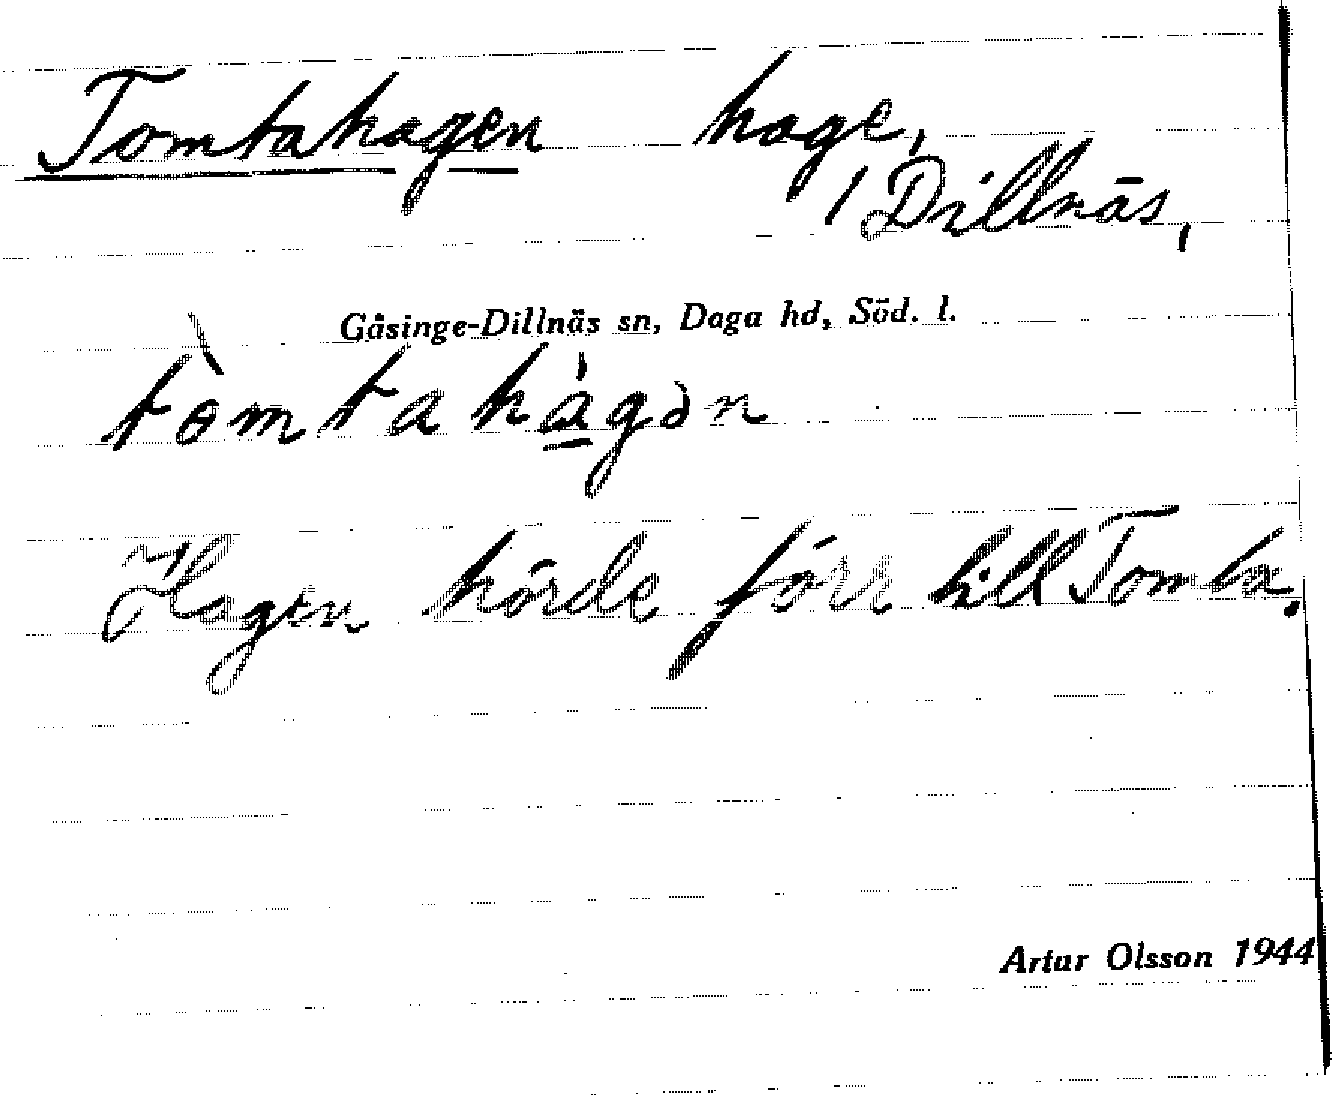 Tomtahagen hage,
/ Dillnäs,
Gåsinge-Dillnäs sn, Daga hd, Söd. l.
tòmtahágən
Hagen hörde förr till Tomta.
Artur Olsson 1944